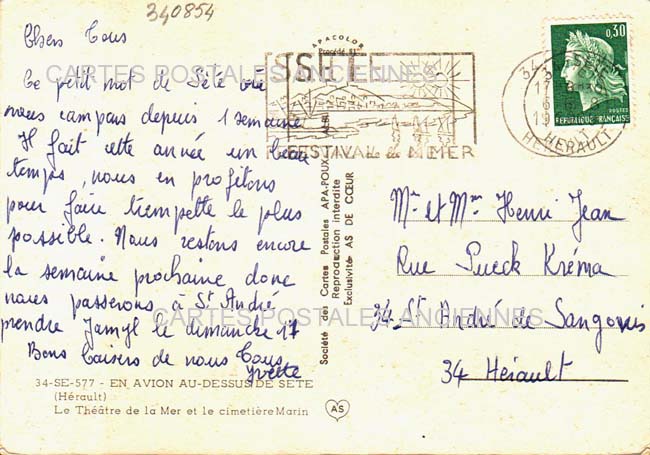 340854
Chers Tous
Ce petit mot de Sète où
nous campons depuis 1 semaine
Il fait cette année un beau
temps, nous en profitons
pour faire trempette le plus
possible. Nous restons encore
la semaine prochaine donc
nous passerons à St André
prendre le dimanche 17
Bons baisers de nous Tous
Yvette
34-SE-577 - EN AVION AU-DESSUS DE SETE
(Hérault)
Le Théâtre de la Mer et le cimetière Marin
APACOLOR
Société des Cartes Postales APA-POUX
Reproduction interdite
Exclusivité AS DE CŒUR
AS
SETE
FESTIVAL de la MER
34 SETE
17
6
19
HERAULT
0,30
POSTES
REPUBLIQUE FRANÇAISE
Mr et Mme Henri Jean
Rue Pueck Kréma
34 St André de Sangonis
34 Hérault
CARTES POSTALES ANCIENNES
CARTES POSTALES ANCIENNES